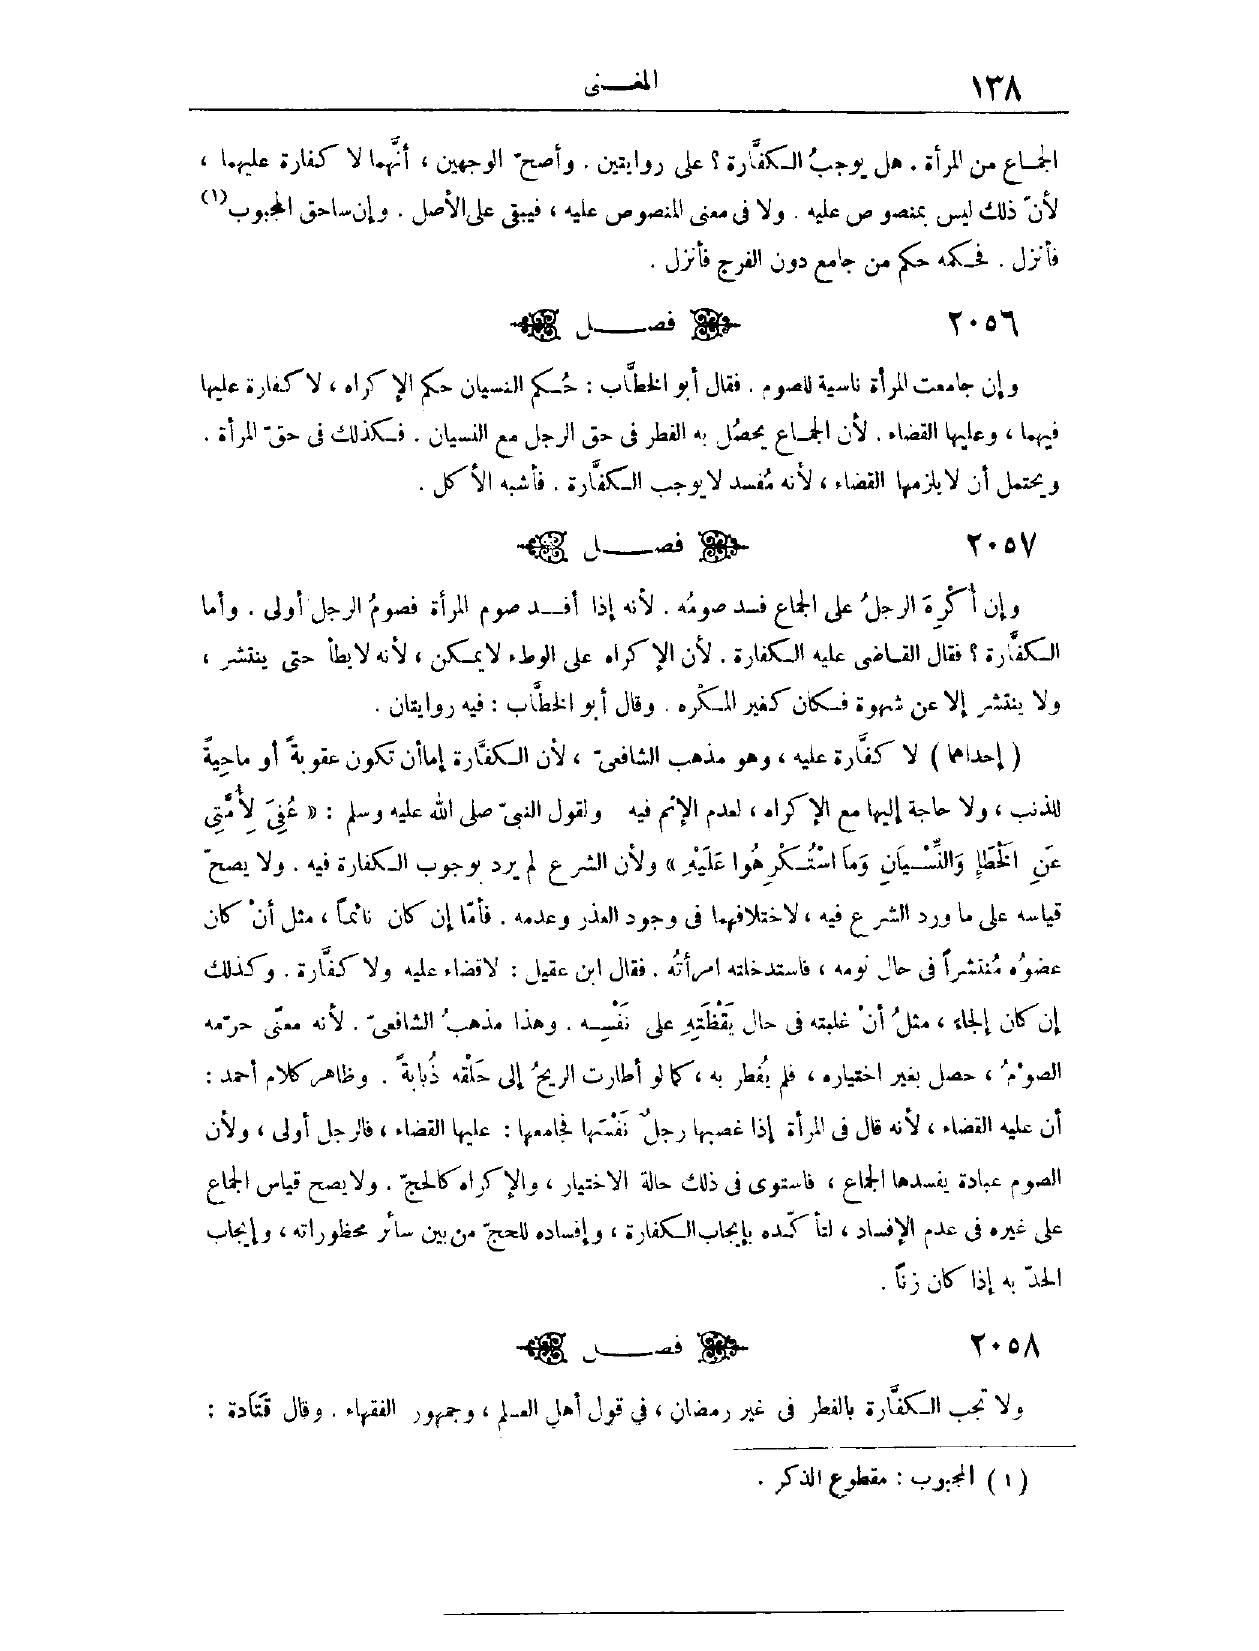 ١٣٨
المغـنى
الجمـاع من المرأة . هل يوجبُ الـكفَّارة ؟ على روايتين . وأصحّ الوجهين ، أنَّهما لا كفارة عليهما ،
لأنّ ذلك ليس بمنصوص عليه . ولا فى معنى المنصوص عليه ، فيبقى على الأصل . وإن ساحق المجبوب(١)
فأنزل . فحكمه حكم من جامع دون الفرج فأنزل .
٢٠٥٦
فصـــل
وإن جامعت المرأة ناسية للصوم . فقال أبو الخطَّاب : حُـكم النسيان حكم الإكراه ، لا كفارة عليها
فيهما ، وعليها القضاء . لأن الجمـاع يحصُل به الفطر فى حق الرجل مع النسيان . فـكذلك فى حقّ المرأة .
ويحتمل أن لا يلزمها القضاء ، لأنه مُفسد لا يوجب الـكفَّارة . فأشبه الأكل .
٢٠٥٧
فصـــل
وإن أُكْرِهَ الرجلُ على الجماع فسد صومُه . لأنه إذا أفـسد صوم المرأة فصومُ الرجل أولى . وأما
الـكفَّارة ؟ فقال القـاضى عليه الـكفارة . لأن الإكراه على الوطء لا يمـكن ، لأنه لا يطأ حتى ينتشر ،
ولا ينتشر إلا عن شهوة فـكان كغير المـكْره . وقال أبو الخطَّاب : فيه روايتان .
( إحداهما ) لا كفَّارة عليه ، وهو مذهب الشافعىّ ، لأن الـكفَّارة إما أن تكون عقوبةً أو ماحِيةً
للذنب ، ولا حاجة إليها مع الإكراه ، لعدم الإثم فيه ولقول النبىّ صلى الله عليه وسلم : « عُفِىَ لِأُمَّتِى
عَنِ الْخَطَإِ وَالنِّسْـيَانِ وَمَا اسْتُـكْرِهُوا عَلَيْهِ » ولأن الشرع لم يرد بوجوب الـكفارة فيه . ولا يصحّ
قياسه على ما ورد الشرع فيه ، لاختلافهما فى وجود العذر وعدمه . فأمّا إن كان نائمـاً ، مثل أنْ كان
عضوُه مُنتشراً فى حال نومه ، فاستدخلته امرأتُه . فقال ابن عقيل : لا قضاء عليه ولا كفَّارة . وكذلك
إن كان إلجاء ، مثلُ أنْ غلبته فى حال يَقْظَتِهِ على نَفْسِـه . وهذا مذهبُ الشافعىّ . لأنه معنًى حرّمه
الصوْمُ ، حصل بغير اختياره ، فلم يُفطر به ، كما لو أطارت الريحُ إلى حَلْقه ذُبابةً . وظاهر كلام أحمد :
أن عليه القضاء ، لأنه قال فى المرأة إذا غصبها رجلٌ نَفْسَها فجامعها : عليها القضاء ، فالرجل أولى ، ولأن
الصوم عبادة يفسدها الجماع ، فاستوى فى ذلك حالة الاختيار ، والإكراه كالحجّ . ولا يصح قياس الجماع
على غيره فى عدم الإفساد ، لتأكّده بإيجاب الـكفارة ، وإفساده للحجّ من بين سائر محظوراته ، وإيجاب
الحدّ به إذا كان زناً .
٢٠٥٨
فصـــل
ولا تجب الـكفَّارة بالفطر فى غير رمضان ، في قول أهل العـلم ، وجمهور الفقهاء . وقال قَتَادة :
( ١ ) المجبوب : مقطوع الذكر .